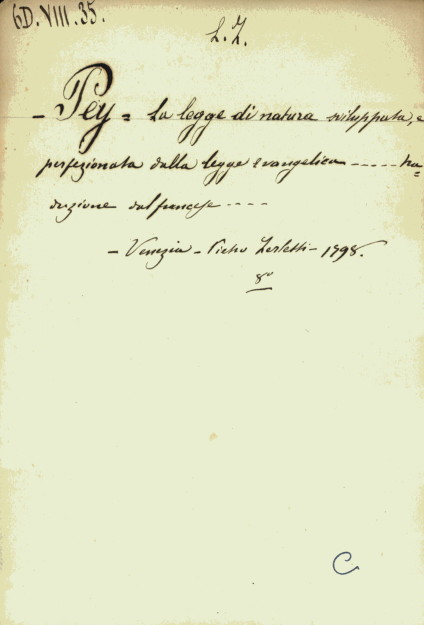 6D.VIII.35.
L.Z.
- Pey = La legge di natura sviluppata, e
perfezionata dalla legge Evangelica ----- tra=
duzione dal francese ----
- Venezia - Pietro Zerletti - 1798.
8°
C